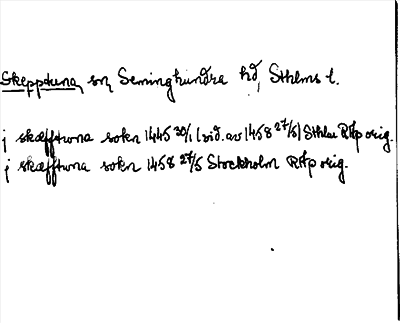 Skepptuna, sn, Seminghundra hd, Sthlms l.
j skæfftwna sokn 1445 30/1 (vid. av 1458 27/5) Sthlm RAp orig.
j skæfftwna sokn 1458 27/5 Stockholm RAp orig.